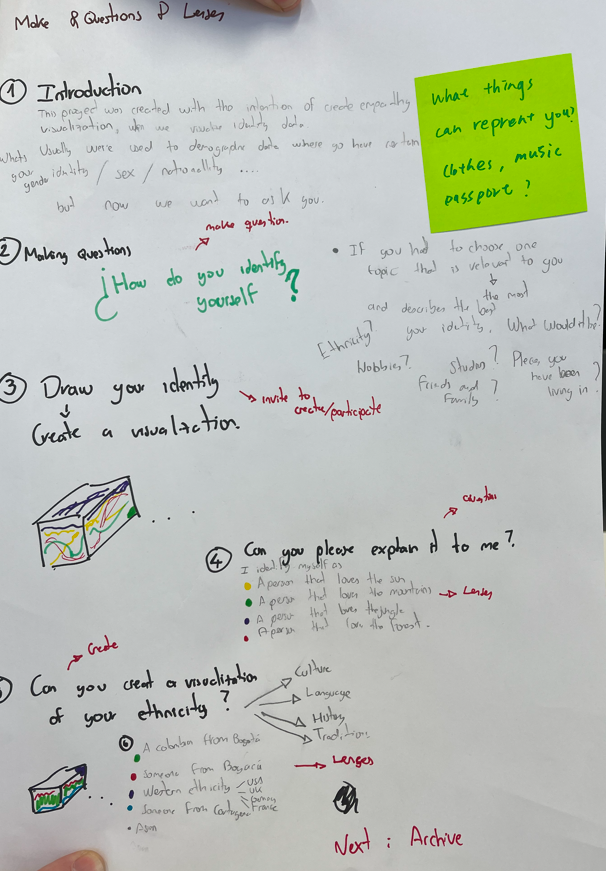 Make & Questions & Lenses
① Introduction
This project was created with the intention of create empanthy
visualization, whn we visualize identity data
Usually were used to demographic data where yo have certain
whats your gender identity / sex / nationallity ....
but now we want to ask you.
What things
can reprent you?
clothes, music
passport?
② Making Questions
make question.
¿How do you identify
yourself?
• If you had to choose one
topic that is relevant to you
and describes the best
the most
your identity, What would be?
Ethnicity?
Hobbies?
Studies?
Friends and
Family?
Places you
have been
living in?
③ Draw your identity
Create a visualization.
invite to
create/participate
. . .
question
④ Can you please explain it to me?
I identify myself as
A person that loves the sun
A person that loves the mountains
A person that loves the jungle
A person that loves the forest.
Lenses
Create
Can you creat a visualization
of your ethnicity?
Culture
Language
History
Traditions
⑥
A colombian from Bogotá
Someone from Bogotá
Western ethnicity
USA
UK
Germany
France
Someone from Cartagena
. . .
Lenses
Next : Archive